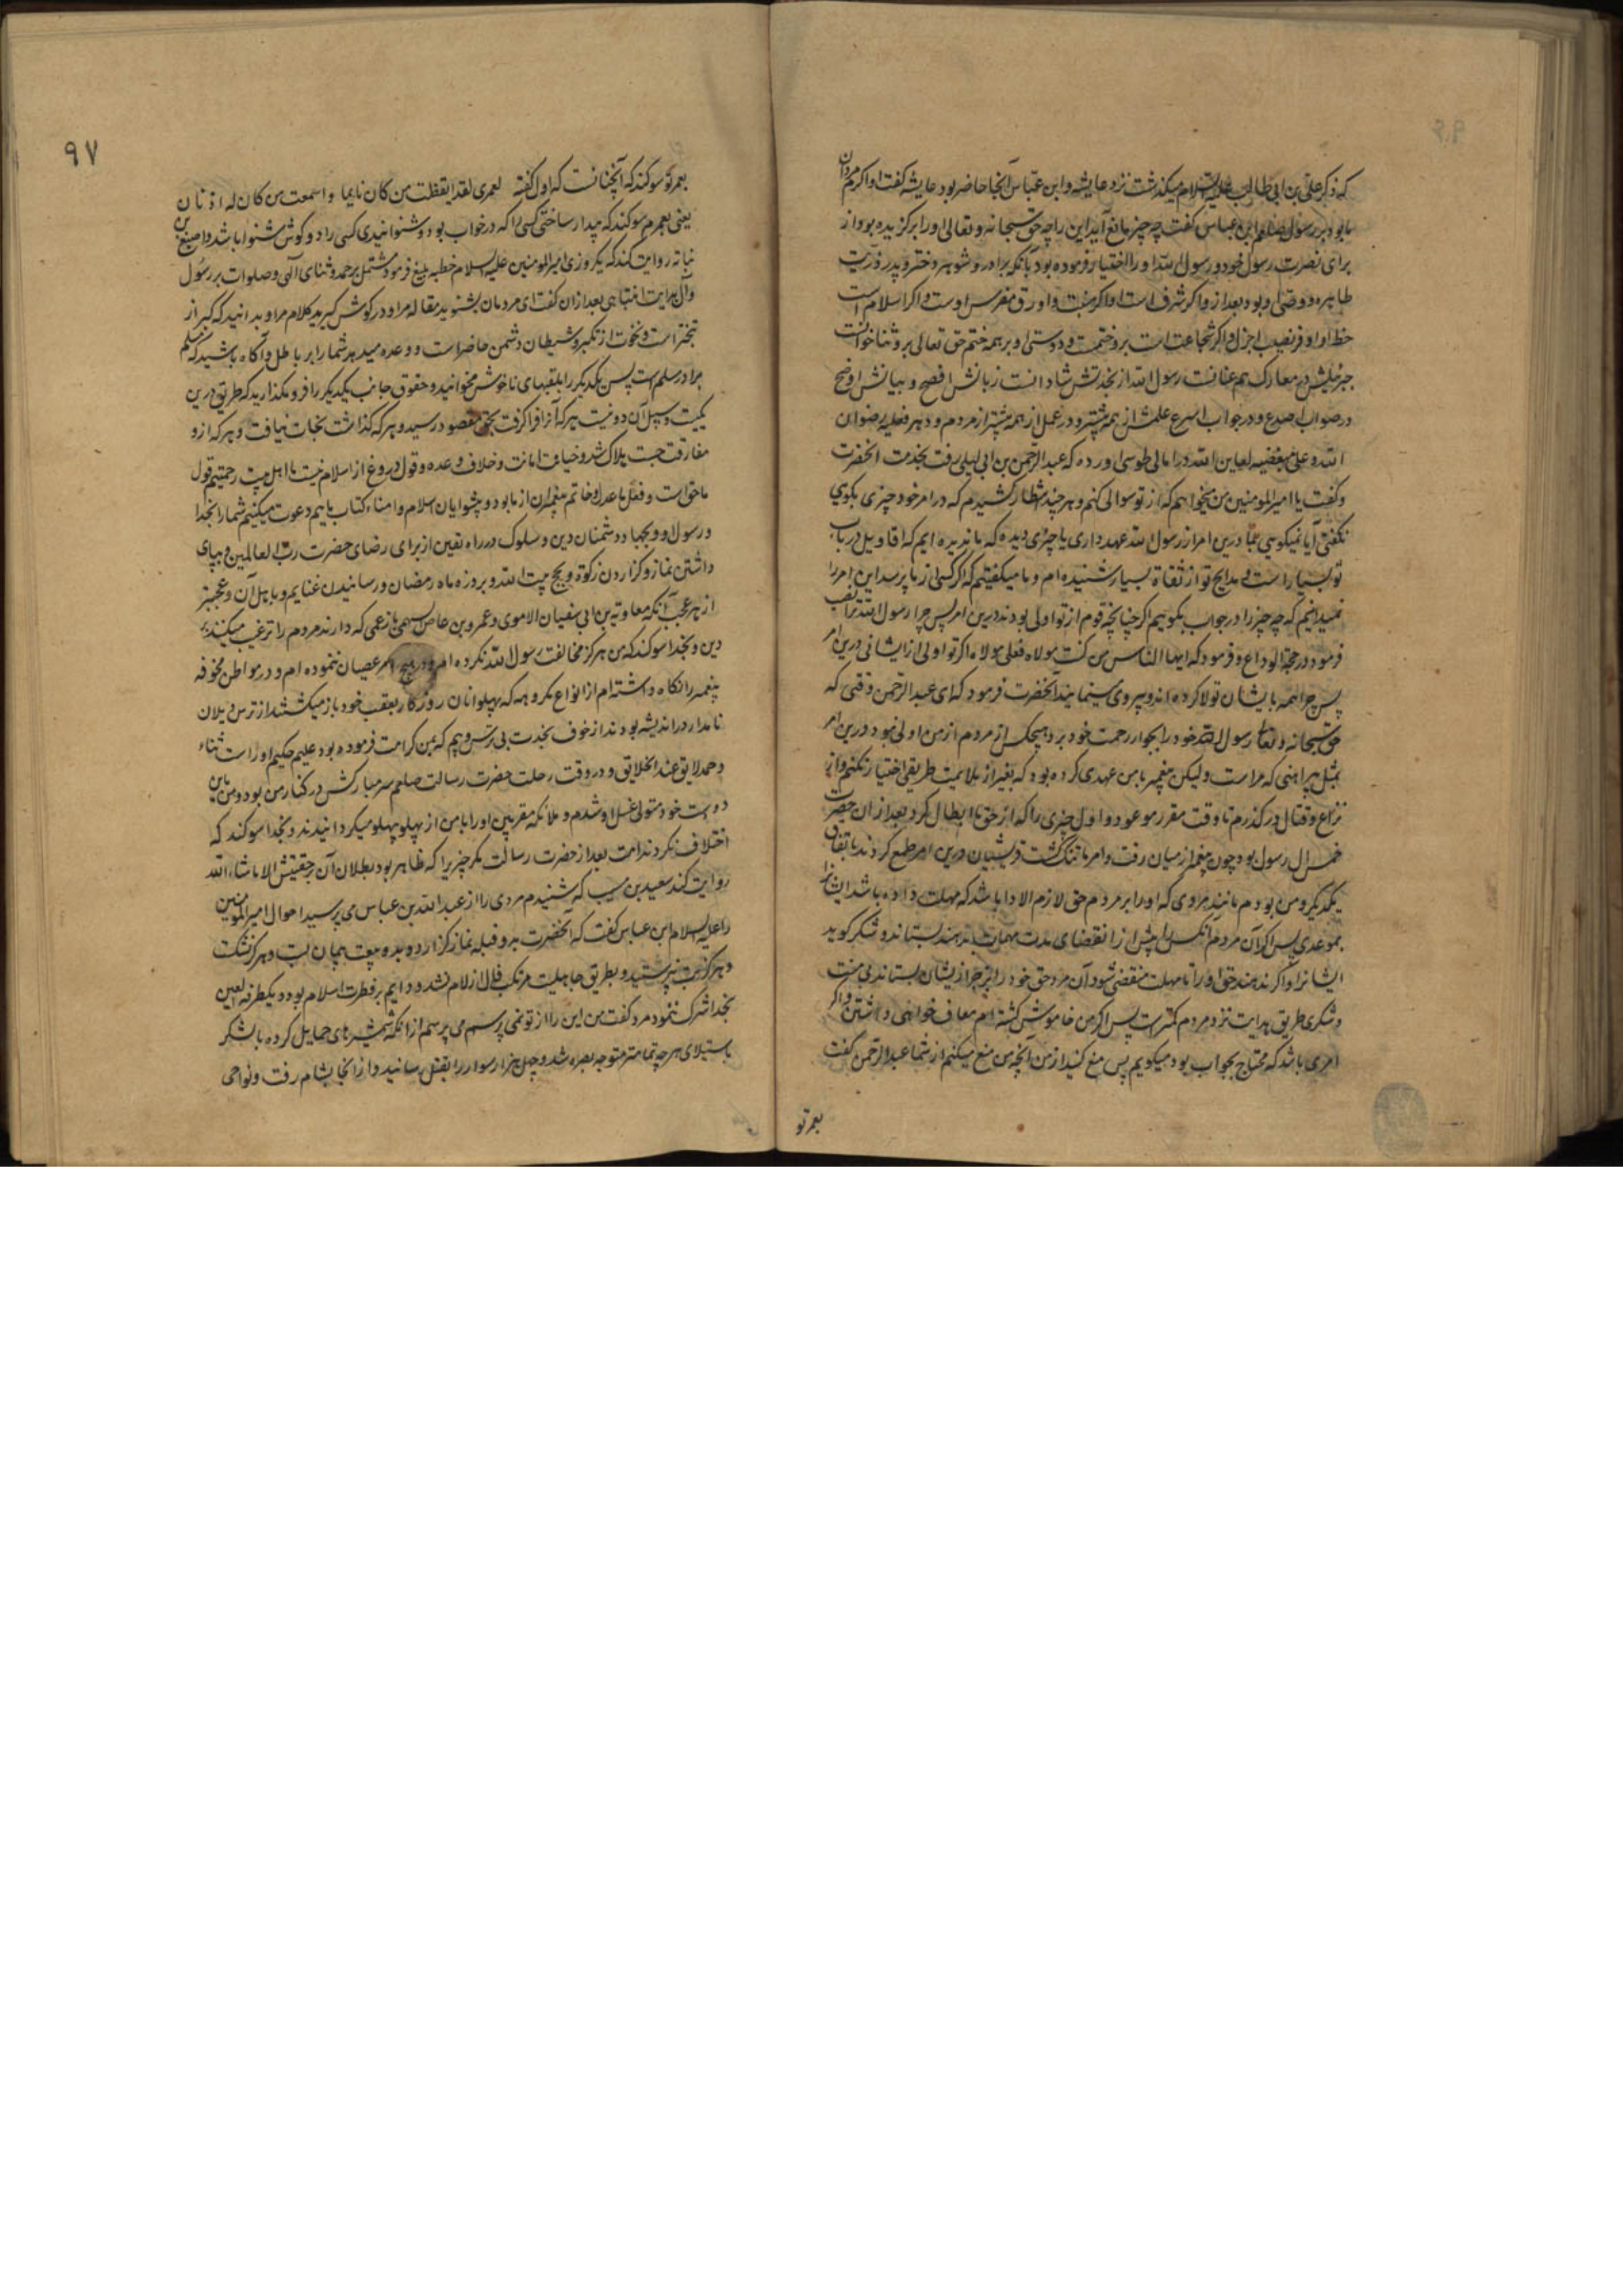 که ذکر علی بن ابی طالب علیه السلام میکذشت نزد عایشه و ابن عباس آنجا حاضر بود عایشه کفت او اکرم مردان
ما بود بر رسول صلعم ابن عباس کفت چه چیز مانع آید این را چه حق سبحانه و تعالی او را برکزیده بود از
برای نصرت رسول خود و رسول الله او را اختیار فرموده بود بآنکه برادر و شوهر دختر و پدر ذریت
طاهره و وصی او بود بعد از و اکر شرف است او اکرم منبت و اورق مغرس اوست و اکر اسلام است
حظ او اوفر نصیب اجزل و اکر شجاعت است برو ختمست و دوستی او بر همه ختم حق تعالی برو ثنا خوانست
جبرئیلش در معارک هم عنانست رسول الله از بخدتش شادانست زبانش افصح و بیانش اوضح
در صواب اصدع و در جواب اسرع علمش از همه بیشتر و در عمل از همه پیشتر از مردم و در هر فعلیه رضوان
الله و علی مبغضیه لعاین الله در امالی طوسی اورده که عبد الرحمن بن ابی لیلی رفت بخدمت انحضرت
و کفت یا امیر المومنین من میخواهم که از تو سوالی کنم و هر چند انتظار کشیدم که در امر خود چیزی بکوی
نکفتی آیا نمیکویی بما درین امر از رسول الله عهد داری یا چیزی دیده که ما ندیده ایم که اقاویل در باب
تو بسیار است و مدایح تو از ثقاة بسیار شنیده ام و ما میکفتیم که اکر کسی از ما پرسد این امر را
نمیدانیم که چه چیز را در جواب بکوییم اکر چنانچه قوم از تو اولی بودند درین امر پس چرا رسول الله ترا نصب
فرمود در حجة الوداع و فرمود که ایها الناس من کنت مولاه فعلی مولاه اکر تو اولی از ایشانی درین امر
پس چرا همه بایشان تولا کرده اند و پیروی مینمایند آنحضرت فرمود که ای عبد الرحمن وقتی که
حق سبحانه و تعالی رسول الله خود را بجوار رحمت خود برد هیچکس از مردم از من اولی نبود درین امر
بمثل پیراهنی که مراست ولیکن پیغمبر با من عهدی کرده بود که بغیر از ملایمت طریقی اختیار نکنم و از
نزاع و قتال در کذرم تا وقت مقرر موعود و اول چیزی را که از حق ما ابطال کرد بعد از ان حضرت
خمس ال رسول بود چون پیغمبر از میان رفت و امر ما تنک کشت قریشیان درین امر طمع کردند باتفاق
یکدیکر و من بودم مانند مردی که او را بر مردم حق لازم الادا باشد که مهلت داده باشد ایشانرا
بموعدی پس اکر آن مردم آنکس را پیش از انقضای مدت مهلت بدهند بستاند و شکر کوید
ایشانرا و اکر ندهند حق او را تا مهلت منقضی شود آن مرد حق خود را بزجر از ایشان بستاند بی منت
و شکری طریق هدایت نزد مردم کمتر است پس اکر من خاموش کشته ام معاف خواهی داشتن و اکر
امری باشد که محتاج بجواب بود میکویم پس منع کنید از من آنچه من منع میکنم از شما عبد الرحمن کفت
بعمر تو
۹۷
بعمر تو سوکند که آنچنانست که اول کفته لعمری لقد ایقظت من کان نایما و اسمعت من کان له اذنان
یعنی بعمرم سوکند که بیدار ساختی کسی را که در خواب بود و شنوانیدی کسی را دو کوش شنوا باشد و اصبغ بن
نباته روایت کند که یکروزی امیر المومنین علیه السلام خطبه بلیغ فرمود مشتمل بر حمد و ثنای الهی و صلوات بر رسول
و آل هدایت انتباهی بعد از ان کفت ای مردمان بشنوید مقاله مرا و در کوش کیرید کلام مرا و بدانید که کبر از
تبختر است و نخوت از تکبر و شیطان دشمن حاضر است و وعده میدهد شما را بر باطل و آکاه باشید که مسلم
برادر مسلم است پس یکدیکر را بلقبهای ناخوش مخوانید و حقوق جانب یکدیکر را فرو مکذارید که طریق دین
یکیست و سبل آن دو نیست هر که آنرا فرا کرفت بحق مقصود رسید و هر که کذاشت نجات نیافت و هر که ازو
مفارقت جست هلاک شد و خیانت امانت و خلاف وعده و قول دروغ از اسلام نیست ما اهل بیت رحمتیم قول
ما حق است و فعل ما عدل و خاتم پیغمبران از ما بود و پیشوایان اسلام و امناء کتاب ماییم دعوت میکنیم شما را بخدا
و رسول او و بجهاد دشمنان دین و سلوک در راه یقین از برای رضای حضرت رب العالمین و بپای
داشتن نماز و کزاردن زکوة و بحج بیت الله و بروزه ماه رمضان و رسانیدن غنایم و باهل آن و عجبتر
از هر عجب آنکه معاویة بن ابی سفیان الاموی و عمرو بن عاص سهمی بازعمی که دارند مردم را ترغیب میکنند
دین و بخدا سوکند که من هرکز مخالفت رسول الله نکرده ام و در هیچ امر عصیان ننموده ام و در مواطن مخوفه
پیغمبر را نکاه داشته ام از انواع مکروهه که پهلوانان روزکار بعقب خود باز میکشتند از ترس و یلان
نامدار در اندیشه بودند از خوف بخدت بی ترس و بیم که بمن کرامت فرموده بود علیم حکیم او راست ثناء
و حمد لایق عند الخلایق و در وقت رحلت حضرت رسالت صلعم سر مبارکش در کنار من بود و من باین
دو دست خود متولی غسل او شدم و ملائکه مقربین او را با من از پهلو بپهلو میکردانیدند و بخدا سوکند که
اختلاف نکردند امت بعد از حضرت رسالت مکر چیزیرا که ظاهر بود بطلان آن بر حقیتش الا ما شاء الله
روایت کند سعید بن مسیب که شنیدم مردی را از عبد الله بن عباس می پرسید احوال امیر المومنین
را علیه السلام ابن عباس کفت که آنحضرت بدو قبله نماز کزارد و بدو بیعت پیمان بست و هرکز نشکست
و هرکز بت نپرستید و بطریق جاهلیت مرتکب فال ازلام نشد و دایم بر فطرت اسلام بود و یکطرفة العین
بخدا شرک ننمود مرد کفت من این را از تو نمی پرسم می پرسم از آنکه شمشیرهای حمایل کرده با لشکر
باستیلای هر چه تمامتر متوجه بصره شد و چهل هزار سوار را بقتل رسانید و از انجا بشام رفت و نواحی